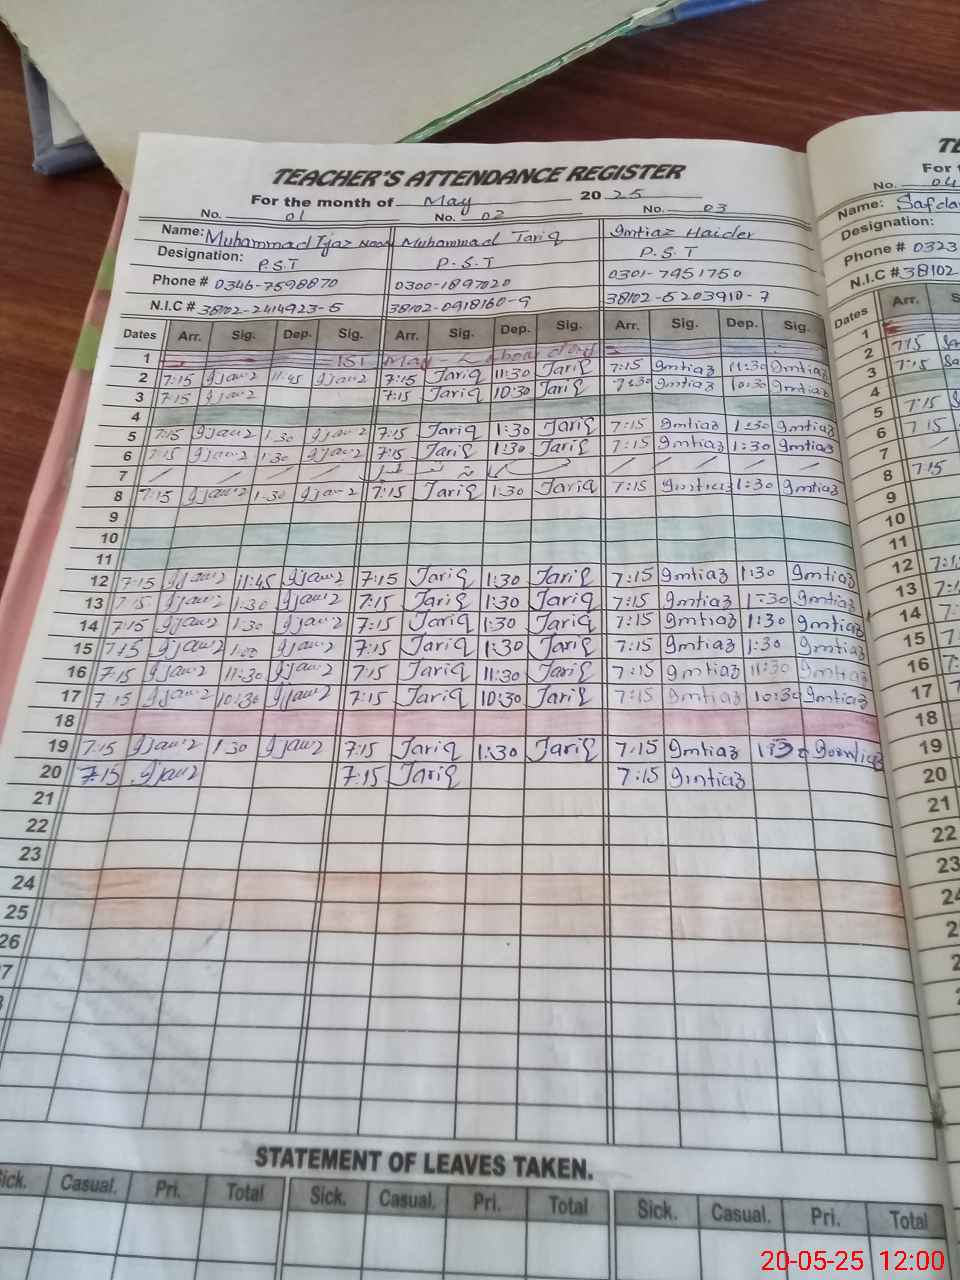 TEACHER'S ATTENDANCE REGISTER
For the month of May 2025
No. 01 No. 02 No. 03
Name: Muhammad Ijaz Muhammad Tariq Imtiaz Haider
Designation: P.S.T P.S.T P.S.T
Phone # 0346-7598870 0300-1897020 0301-7951750
N.I.C # 38102-2414923-5 38102-0918160-9 38102-5203910-7
Dates Arr. Sig. Dep. Sig. Arr. Sig. Dep. Sig. Arr. Sig. Dep. Sig.
1 1st May - Labour day
2 7:15 Ijaz 11:45 Ijaz 7:15 Tariq 11:30 Tariq 7:15 Imtiaz 11:30 Imtiaz
3 7:15 Ijaz 7:15 Tariq 10:30 Tariq 7:30 Imtiaz 10:30 Imtiaz
4
5 7:15 Ijaz 1:30 Ijaz 7:15 Tariq 1:30 Tariq 7:15 Imtiaz 1:30 Imtiaz
6 7:15 Ijaz 1:30 Ijaz 7:15 Tariq 1:30 Tariq 7:15 Imtiaz 1:30 Imtiaz
7
8 7:15 Ijaz 1:30 Ijaz 7:15 Tariq 1:30 Tariq 7:15 Imtiaz 1:30 Imtiaz
9
10
11
12 7:15 Ijaz 11:45 Ijaz 7:15 Tariq 1:30 Tariq 7:15 Imtiaz 1:30 Imtiaz
13 7:15 Ijaz 1:30 Ijaz 7:15 Tariq 1:30 Tariq 7:15 Imtiaz 1:30 Imtiaz
14 7:15 Ijaz 1:30 Ijaz 7:15 Tariq 1:30 Tariq 7:15 Imtiaz 1:30 Imtiaz
15 7:15 Ijaz Ijaz 7:15 Tariq 1:30 Tariq 7:15 Imtiaz 1:30 Imtiaz
16 7:15 Ijaz 11:30 Ijaz 7:15 Tariq 11:30 Tariq 7:15 Imtiaz 11:30 Imtiaz
17 7:15 Ijaz 10:30 Ijaz 7:15 Tariq 10:30 Tariq 7:15 Imtiaz 10:30 Imtiaz
18
19 7:15 Ijaz 1:30 Ijaz 7:15 Tariq 1:30 Tariq 7:15 Imtiaz 1:30 Imtiaz
20 7:15 Ijaz 7:15 Tariq 7:15 Imtiaz
21
22
23
24
25
26
7
STATEMENT OF LEAVES TAKEN.
Sick. Casual. Pri. Total Sick. Casual. Pri. Total Sick. Casual. Pri. Total
For
No. 04
Name:
Designation:
Phone # 0323
N.I.C # 38102
Dates Arr.
1
2 7:15
3 7:15
4
5 7:15
6 7:15
7
8 7:15
9
10
11
12
13
14
15
16
17
18
19
20
21
22
23
20-05-25 12:00